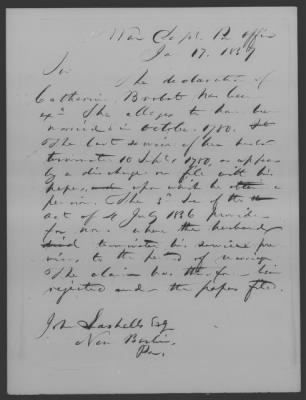 War Dept. P. Office
Ja 17. 1839
Sir
The declaration of
Catherine has been
exd. She alleges to have been
married in October 1780.
The last service of her husband
terminated 10 Sept 1780, as appears
by a discharge on file with his
papers, upon which he a
pension. The 3d Sec of the
act of 4 July 1836 provides
for no where the husband
terminated his services pre
vious to the period of marriage
The claim has therefore been
rejected and the papers filed.
John Lashells Esq
New Berlin
Pa.